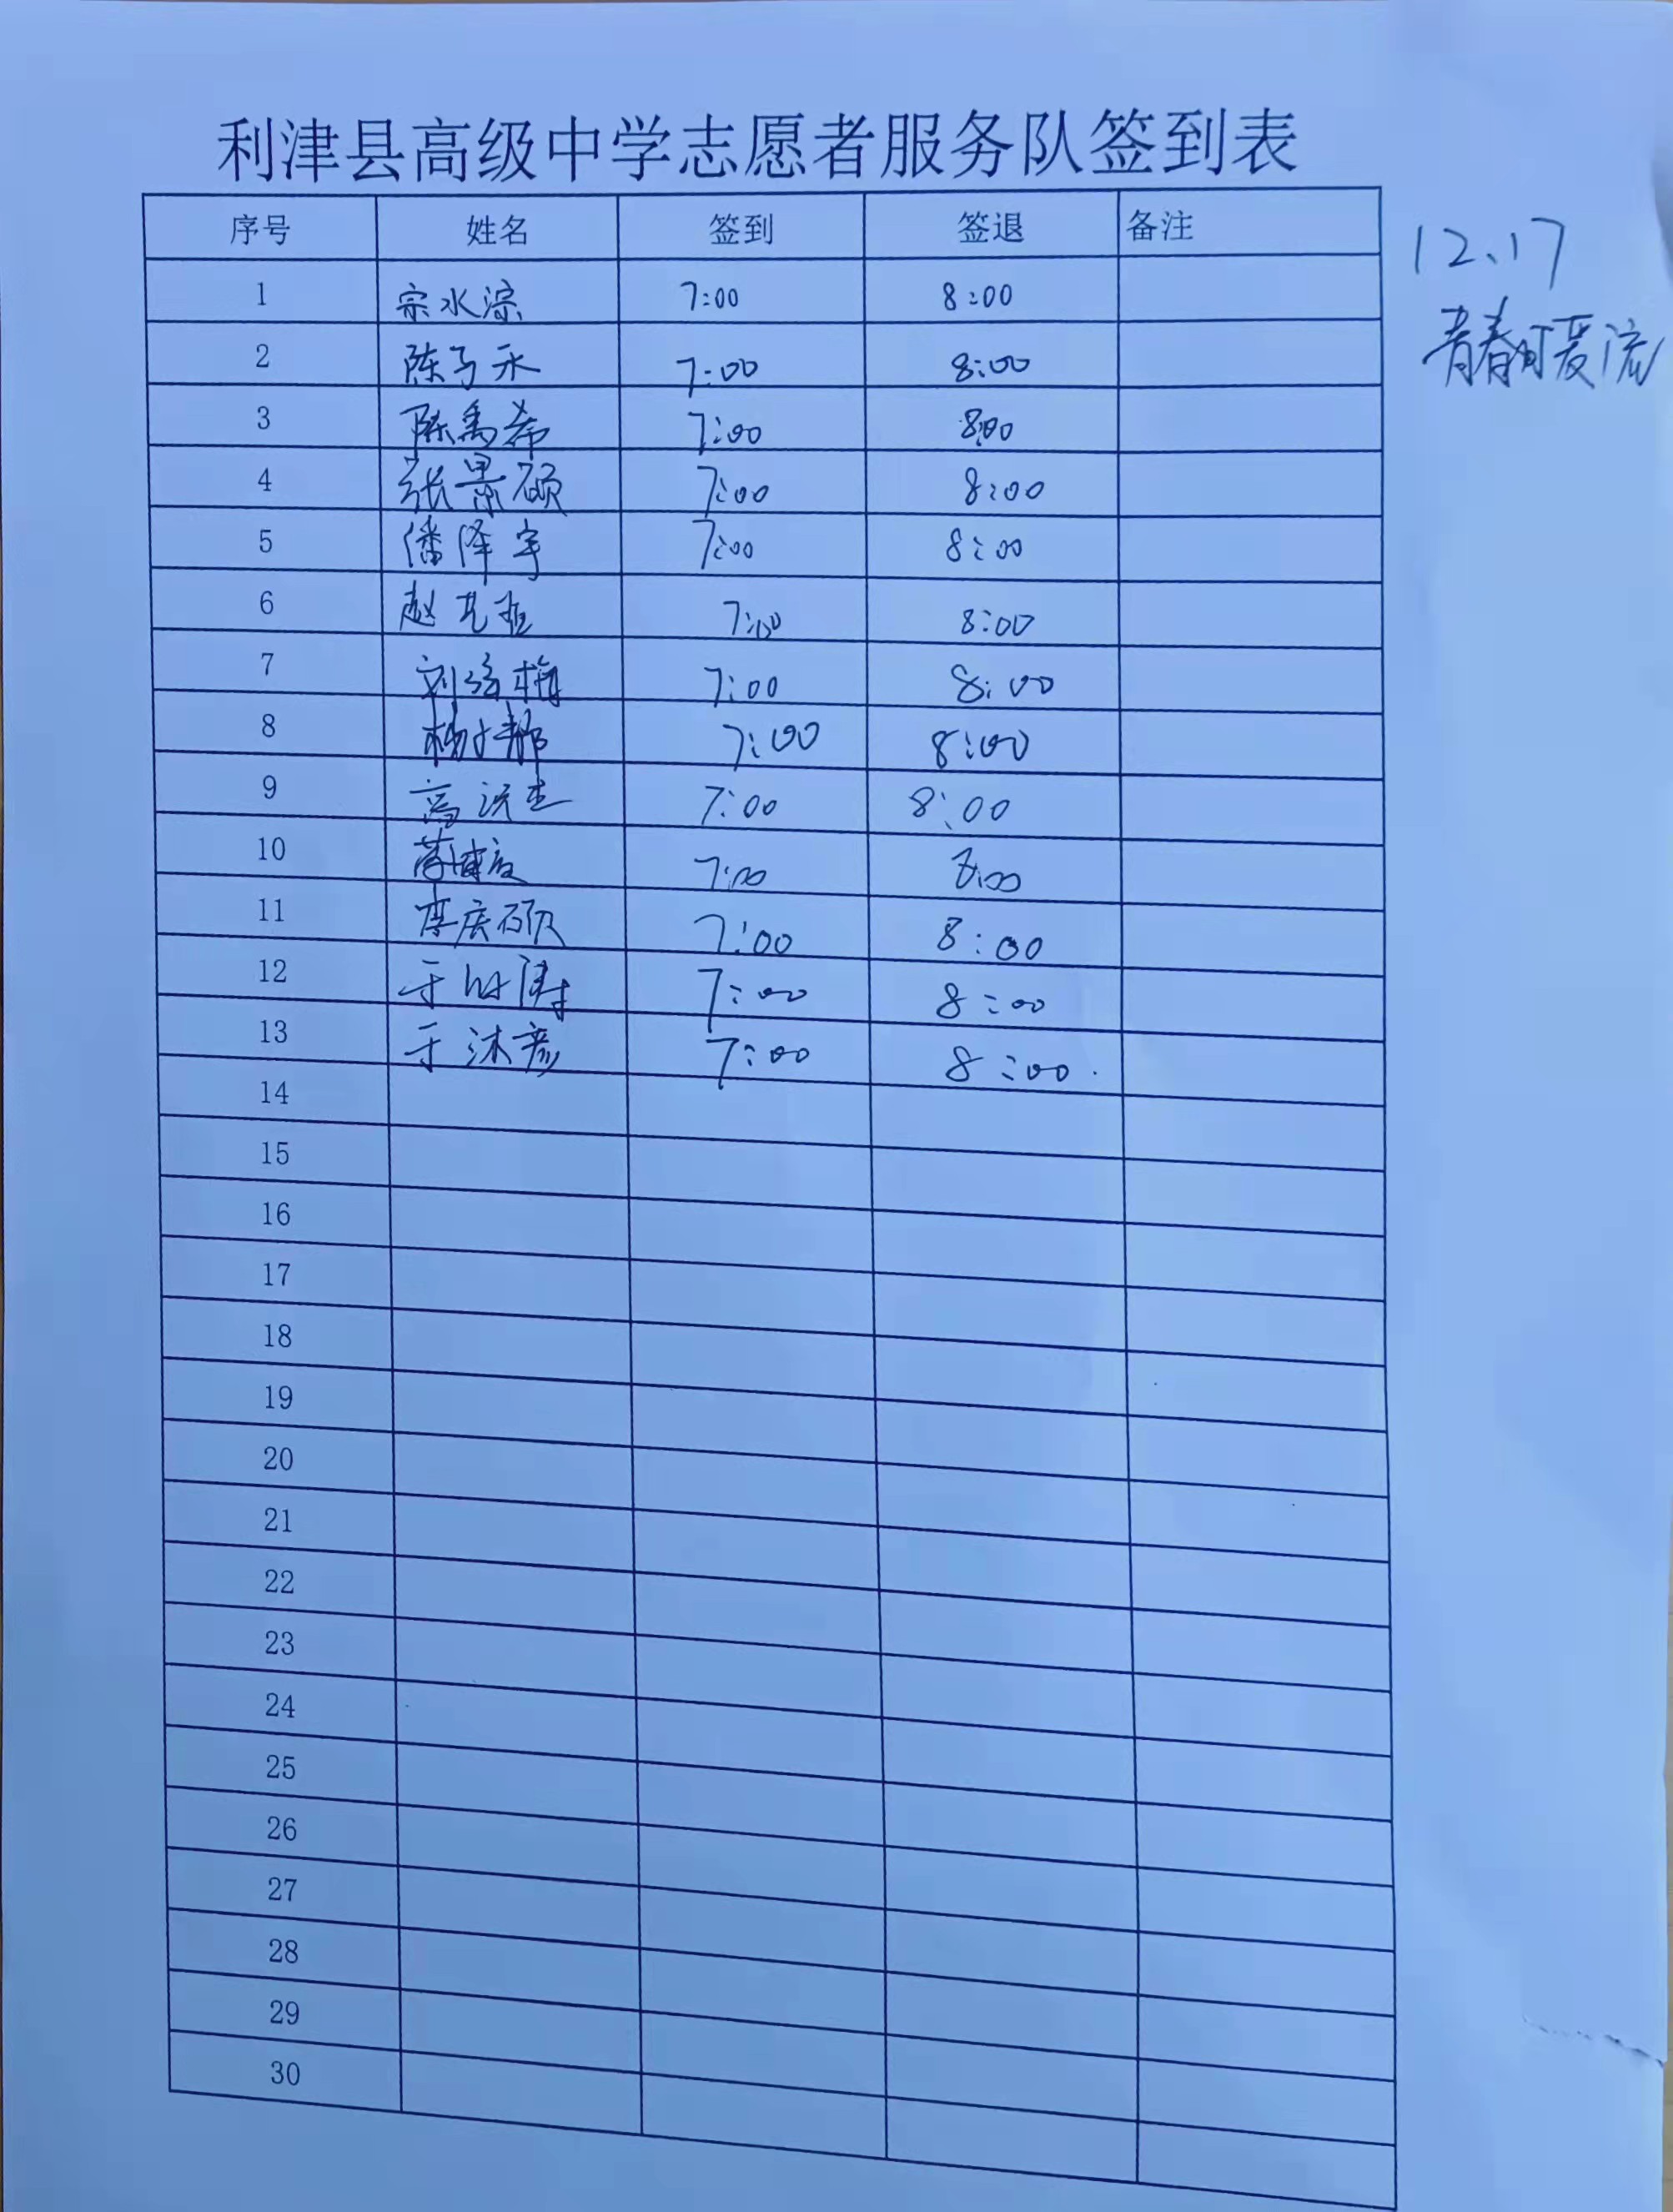 利津县高级中学志愿者服务队签到表
序号 姓名 签到 签退 备注
12、17
青春
1 宗水淙 7:00 8:00
2 陈子禾 7:00 8:00
3 陈禹希 7:00 8:00
4 张景硕 7:00 8:00
5 潘泽宇 7:00 8:00
6 赵 7:00 8:00
7 刘 梅 7:00 8:00
8 杨 7:00 8:00
9 高 7:00 8:00
10 7:00 8:00
11 李庆 7:00 8:00
12 于 涛 7:00 8:00
13 于沐彦 7:00 8:00
14
15
16
17
18
19
20
21
22
23
24
25
26
27
28
29
30